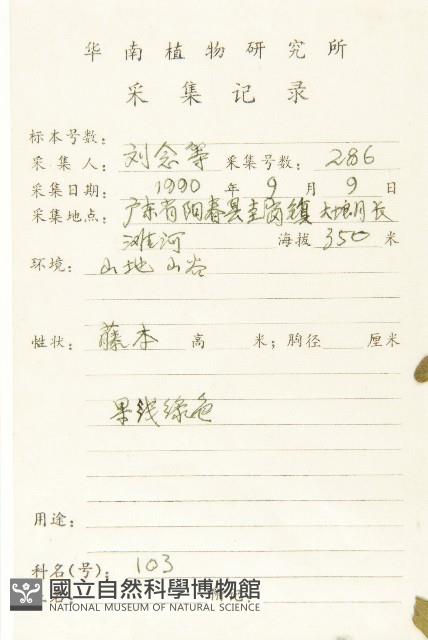 华南植物研究所
采集记录
标本号数：
采集人：刘念等 采集号数：286
采集日期：1990年9月9日
采集地点：广东省阳春县圭岗镇 大塘月长
滩河 海拔 350 米
环境：山地 山谷
性状：藤本 高 米；胸径 厘米
果线绿色
用途：
科名(号)：103
國立自然科學博物館
NATIONAL MUSEUM OF NATURAL SCIENCE